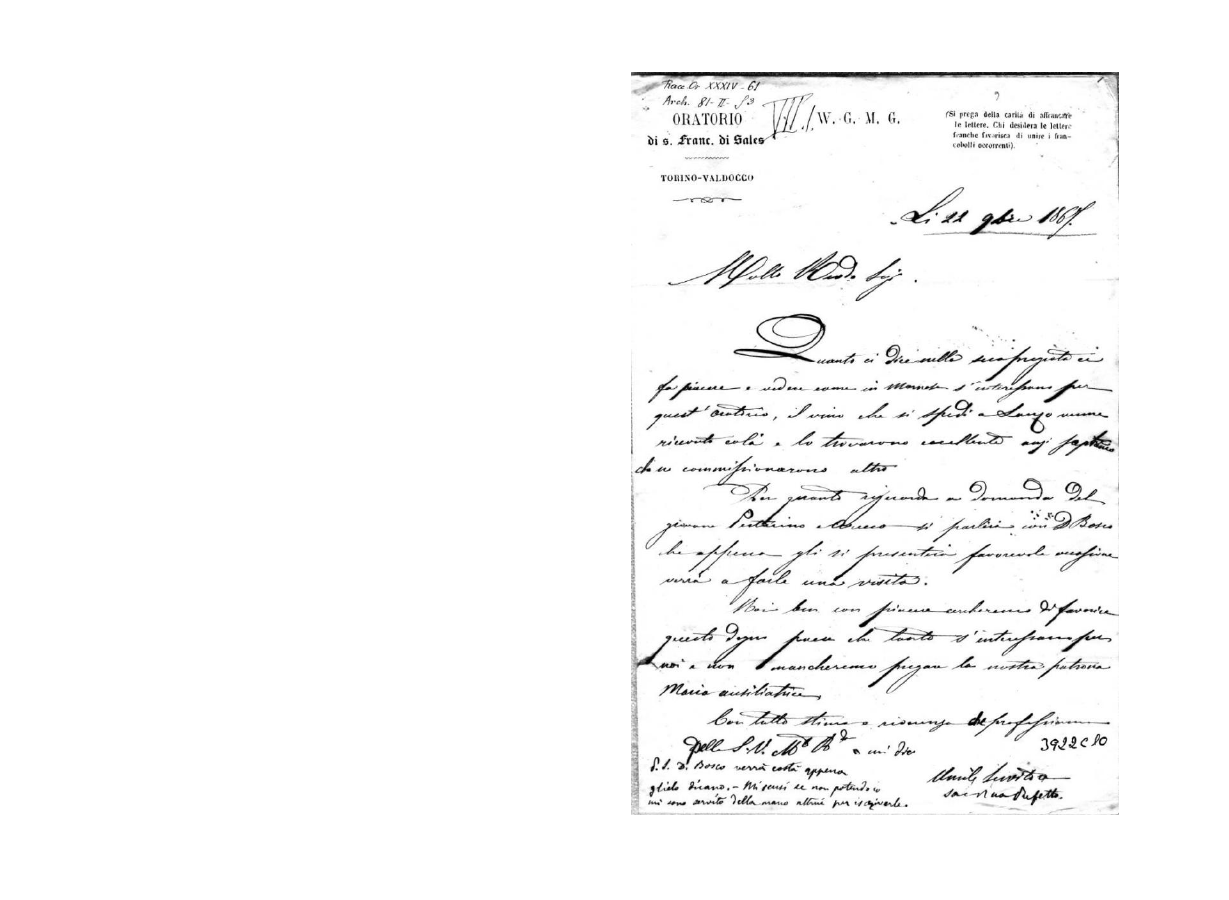 Arch. 81-II-
ORATORIO
di s. Franc. di Sales
TORINO-VALDOCCO
VIII./
W. G. M. G.
(Si prega della carità di affrancare
le lettere. Chi desidera le lettere
franche favorisca di unire i fran-
cobolli occorrenti).
Li 22 9bre 186
Molto Sig.
Quanto ci dice nella ci
fa piacere e vedere come in Mornese s'interessano per
quest' Oratorio, il vino che si spedì a Lanzo venne
ricevuto colà e lo trovarono eccellente anzi
commissionarono altro
Per quanto riguarda a domanda del
giovane Pestarino e si parlerà con D Bosco
che appena gli si presenterà favorevole occasione
verrà a farle una visita.
Noi ben con piacere di favorire
questo degno paese che tanto s'interessano per
noi e non mancheremo pregare la nostra patrona
Maria ausiliatrice,
Con tutta stima e professiamo
Della S. V. M R e mi dico
3922 C 10
P. S. D. Bosco verrà costà appena
glielo dicano. - Mi scusi se non potendo io
mi sono servito della mano altrui per iscriverle.
Umile Servitore